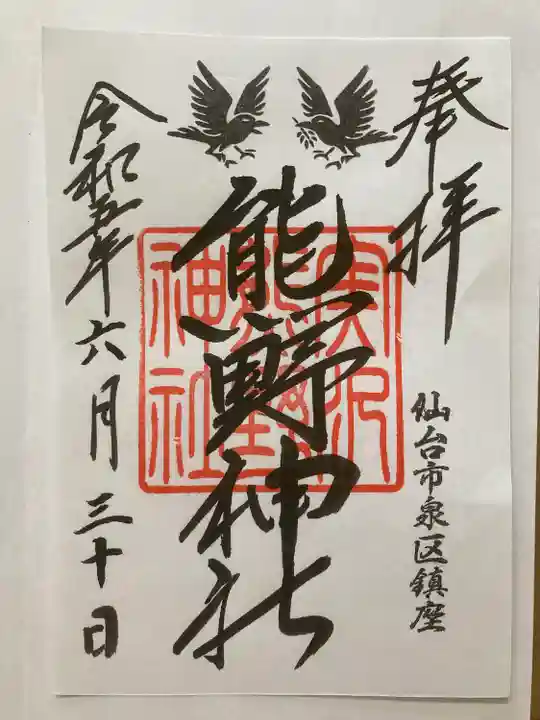 奉拝
仙台市泉区鎮座
熊野神社
令和五年六月三十日
神社